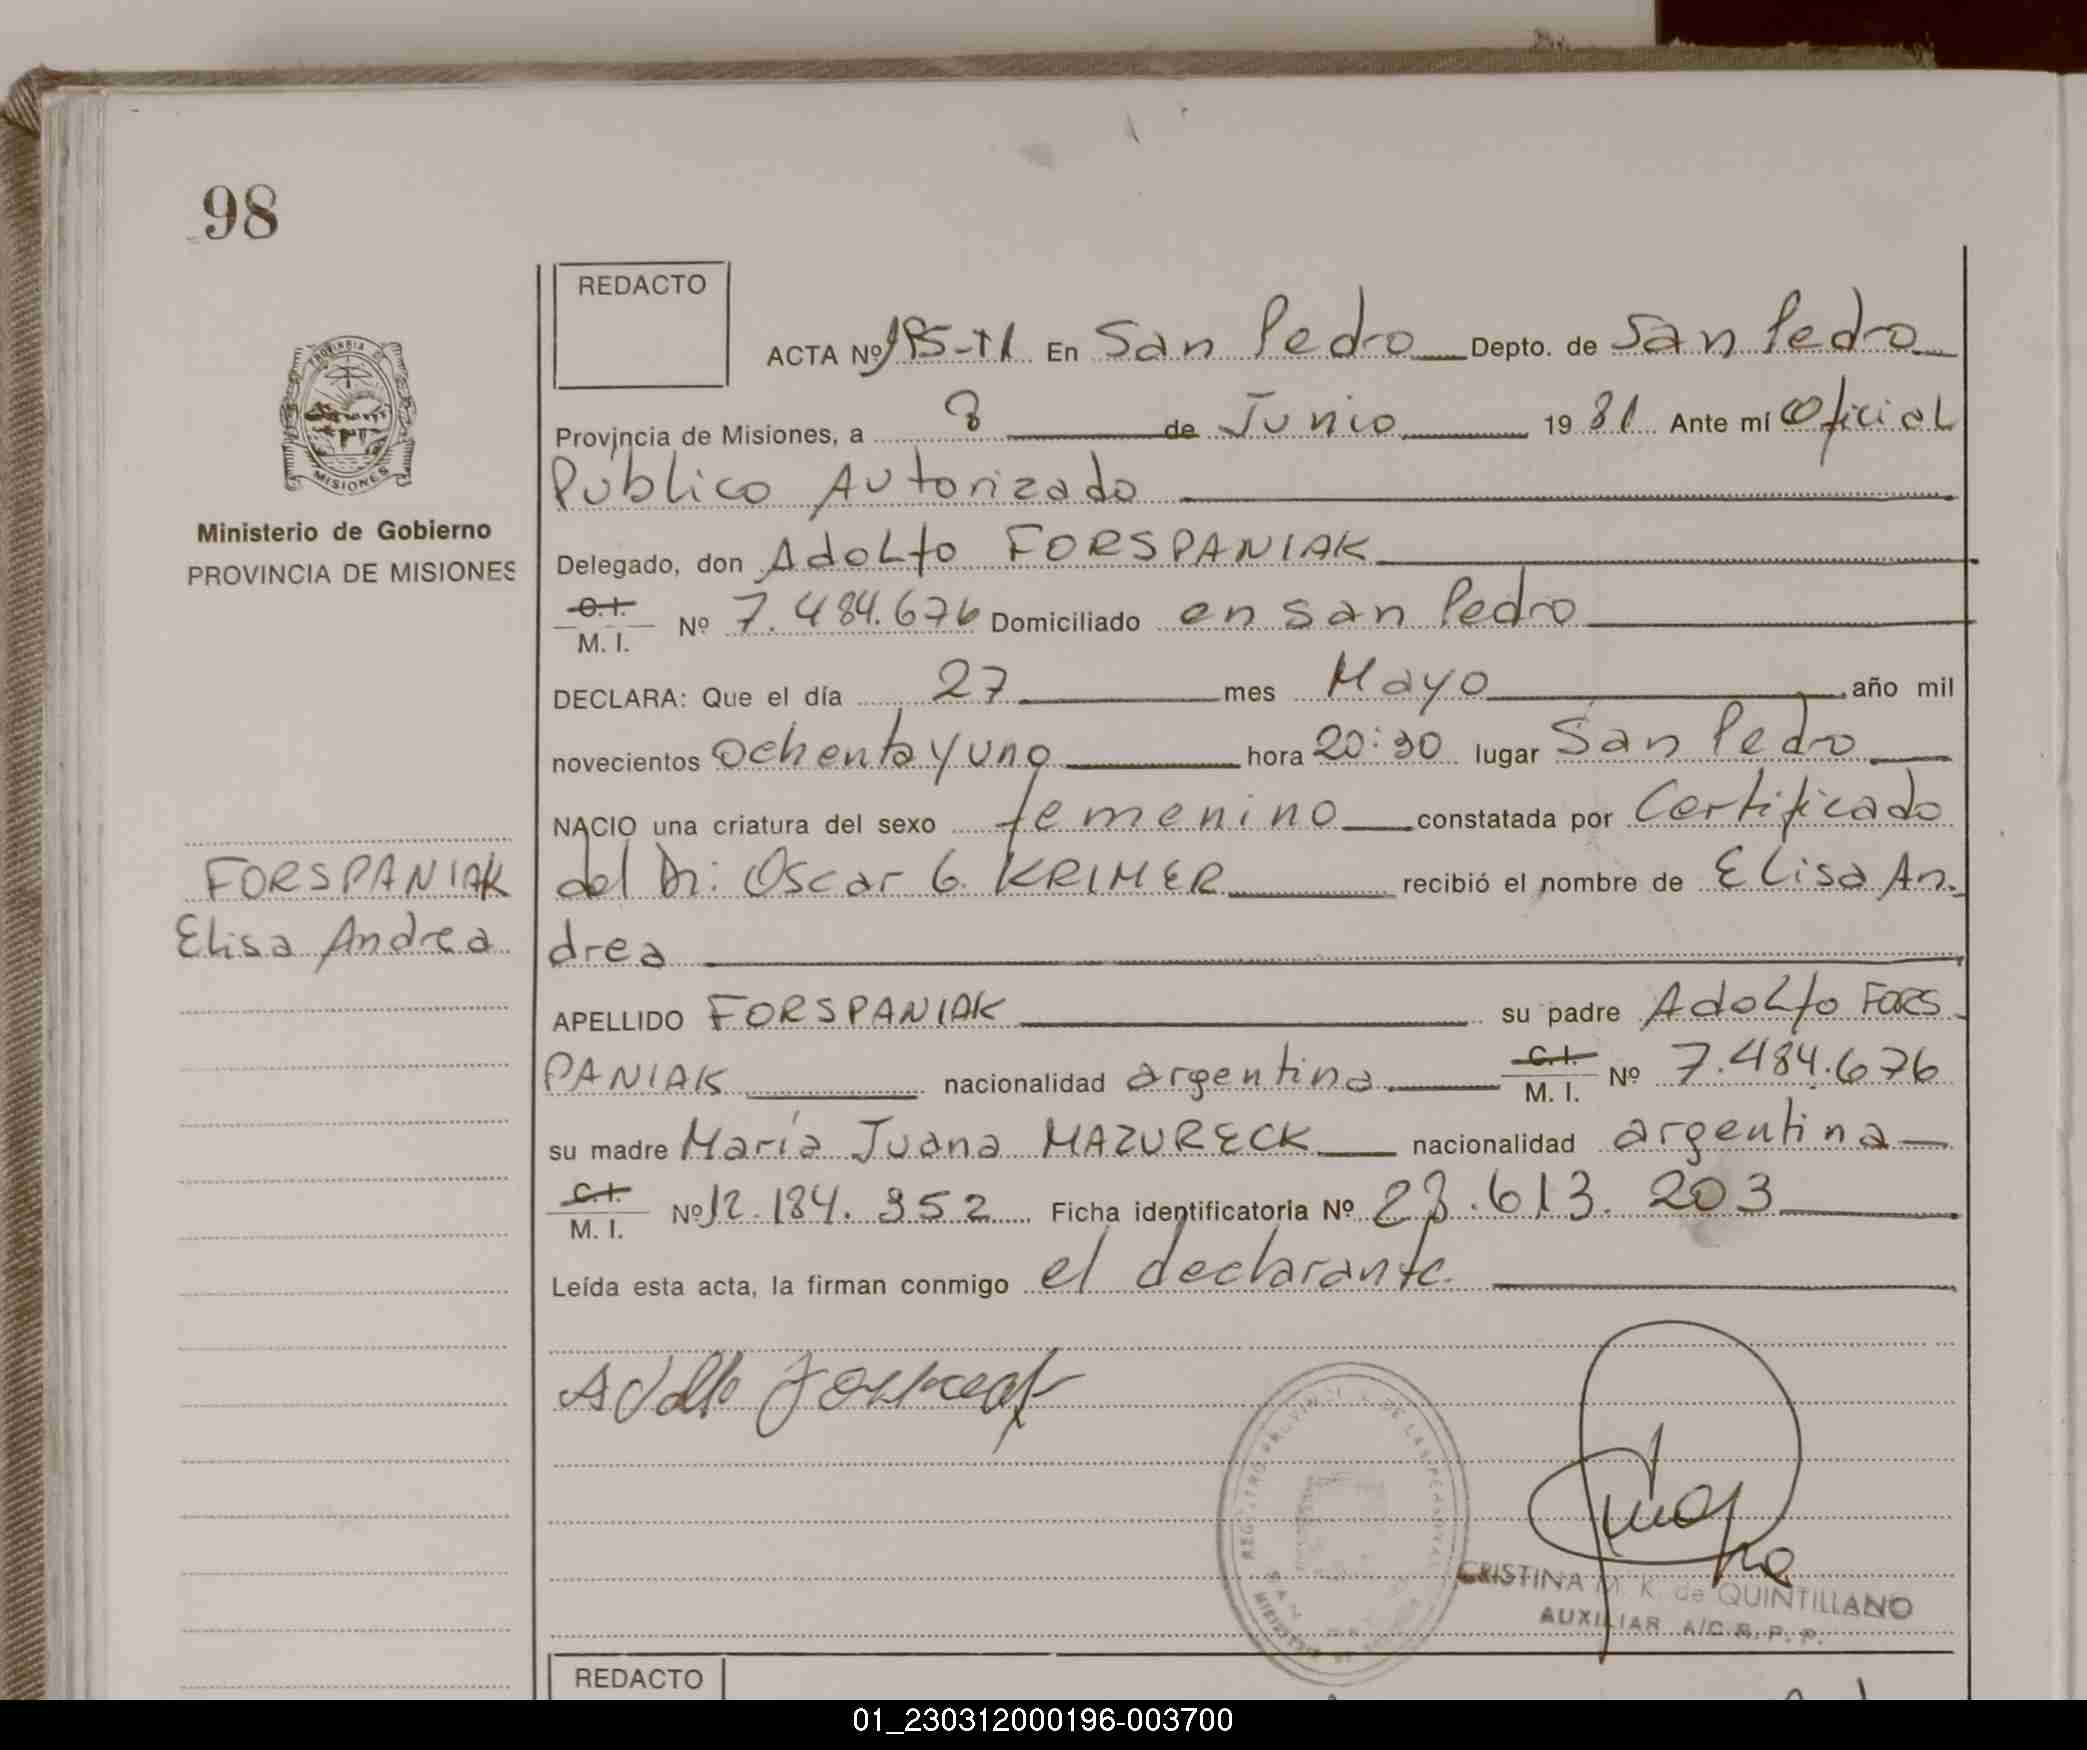 98
REDACTO
ACTA Nº 195-T1 En San Pedro Depto. de San Pedro
Provincia de Misiones, a 8 de Junio 1981 Ante mí Oficial
Público Autorizado
Delegado, don Adolfo FORSPANIAK
C.I.
M. I. Nº 7.484.676 Domiciliado en San Pedro
DECLARA: Que el día 27 mes Mayo año mil
novecientos ochenta y uno hora 20:30 lugar San Pedro
NACIO una criatura del sexo femenino constatada por Certificado
del Dr: Oscar G. KRIMER recibió el nombre de Elisa An-
drea
APELLIDO FORSPANIAK su padre Adolfo FORS-
PANIAK nacionalidad argentina C.I. M. I. Nº 7.484.676
su madre María Juana MAZURECK nacionalidad argentina
C.I.
M. I. Nº 12.184.952 Ficha identificatoria Nº 28.613.203
Leída esta acta, la firman conmigo el declarante.
PROVINCIA DE
MISIONES
Ministerio de Gobierno
PROVINCIA DE MISIONES
FORSPANIAK
Elisa Andrea
Adolfo
REGISTRO PROVINCIAL DE LAS PERSONAS
SAN
CRISTINA M. K. de QUINTILLANO
AUXILIAR A/C R. P. P.
REDACTO
01_230312000196-003700